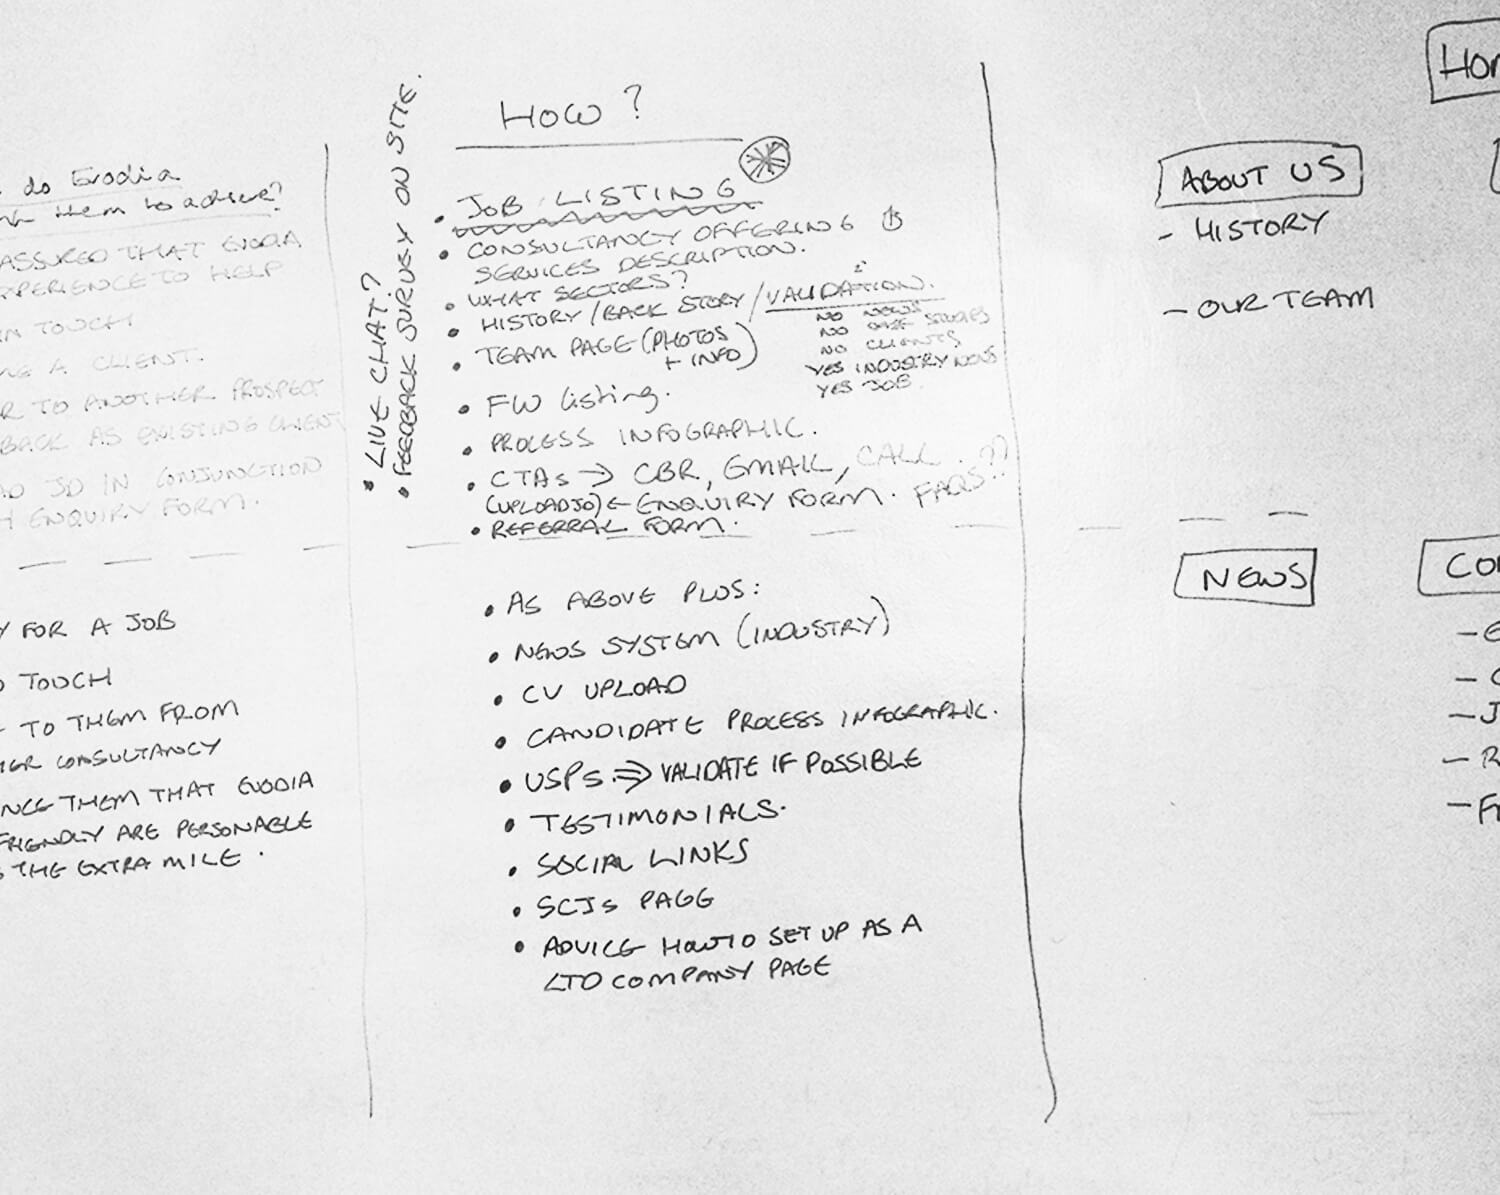 do Evodia
them to achieve?
ASSURED THAT EVODIA
EXPERIENCE TO HELP
IN TOUCH
A CLIENT.
TO ANOTHER PROSPECT
BACK AS EXISTING CLIENT
JD IN CONJUNCTION
ENQUIRY FORM.
FOR A JOB
TOUCH
TO THEM FROM
CONSULTANCY
THEM THAT EVODIA
FRIENDLY ARE PERSONABLE
THE EXTRA MILE.
• LIVE CHAT?
• FEEDBACK SURVEY ON SITE.
HOW?
• JOB LISTING
• CONSULTANCY OFFERING
SERVICES DESCRIPTION.
• WHAT SECTORS?
• HISTORY/BACK STORY/VALIDATION.
NO NEWS
NO CASE STUDIES
NO CLIENTS
YES INDUSTRY NEWS
YES JOB
• TEAM PAGE (PHOTOS
+ INFO)
• FW listing.
• PROCESS INFOGRAPHIC.
• CTAs → CBR, EMAIL, CALL. FAQS??
(UPLOAD JD) ← ENQUIRY FORM.
• REFERRAL FORM.
• AS ABOVE PLUS:
• NEWS SYSTEM (INDUSTRY)
• CV UPLOAD
• CANDIDATE PROCESS INFOGRAPHIC.
• USPS. ⇒ VALIDATE IF POSSIBLE
• TESTIMONIALS.
• SOCIAL LINKS
• SCJs PAGE
• ADVICE HOW TO SET UP AS A
LTD COMPANY PAGE
ABOUT US
- HISTORY
- OUR TEAM
NEWS